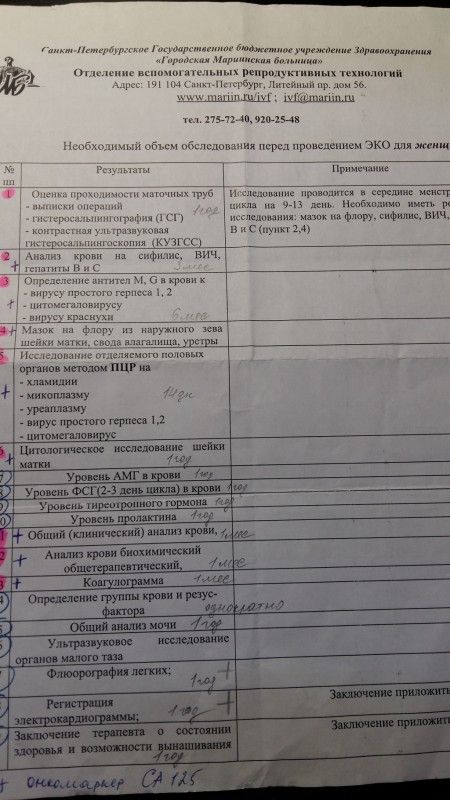 Санкт-Петербургское Государственное бюджетное учреждение Здравоохранения
«Городская Мариинская больница»
Отделение вспомогательных репродуктивных технологий
Адрес: 191 104 Санкт-Петербург, Литейный пр. дом 56.
www.mariin.ru/ivf ; ivf@mariin.ru
тел. 275-72-40, 920-25-48
Необходимый объем обследования перед проведением ЭКО для женщ
№ пп Результаты Примечание
1 Оценка проходимости маточных труб
- выписки операций
- гистеросальпингография (ГСГ) 1 год
- контрастная ультразвуковая
гистеросальпингоскопия (КУЗГСС)
Исследование проводится в середине менстр
цикла на 9-13 день. Необходимо иметь ре
исследования: мазок на флору, сифилис, ВИЧ,
В и С (пункт 2,4)
2 + Анализ крови на сифилис, ВИЧ,
гепатиты В и С 3 мес
3 Определение антител M, G в крови к
- вирусу простого герпеса 1, 2
+ - цитомегаловирусу
- вирусу краснухи 6 мес
4 + Мазок на флору из наружного зева
шейки матки, свода влагалища, уретры
5 Исследование отделяемого половых
органов методом ПЦР на
- хламидии
+ - микоплазму 14 дн
- уреаплазму
- вирус простого герпеса 1,2
- цитомегаловирус
6 + Цитологическое исследование шейки
матки 1 год
7 Уровень АМГ в крови 1 год
8 Уровень ФСГ(2-3 день цикла) в крови 1 год
9 Уровень тиреотропного гормона 1 год
0 Уровень пролактина 1 год
1 + Общий (клинический) анализ крови, 1 мес
2 + Анализ крови биохимический
общетерапевтический, 1 мес
3 + Коагулограмма 1 мес
4 Определение группы крови и резус-
фактора однократно
5 Общий анализ мочи 1 год
6 Ультразвуковое исследование
органов малого таза
Флюорография легких; +
1 год
Регистрация +
электрокардиограммы; 1 год
Заключение приложить
Заключение терапевта о состоянии
здоровья и возможности вынашивания
1 год
Заключение приложить
+ онкомаркер СА 125